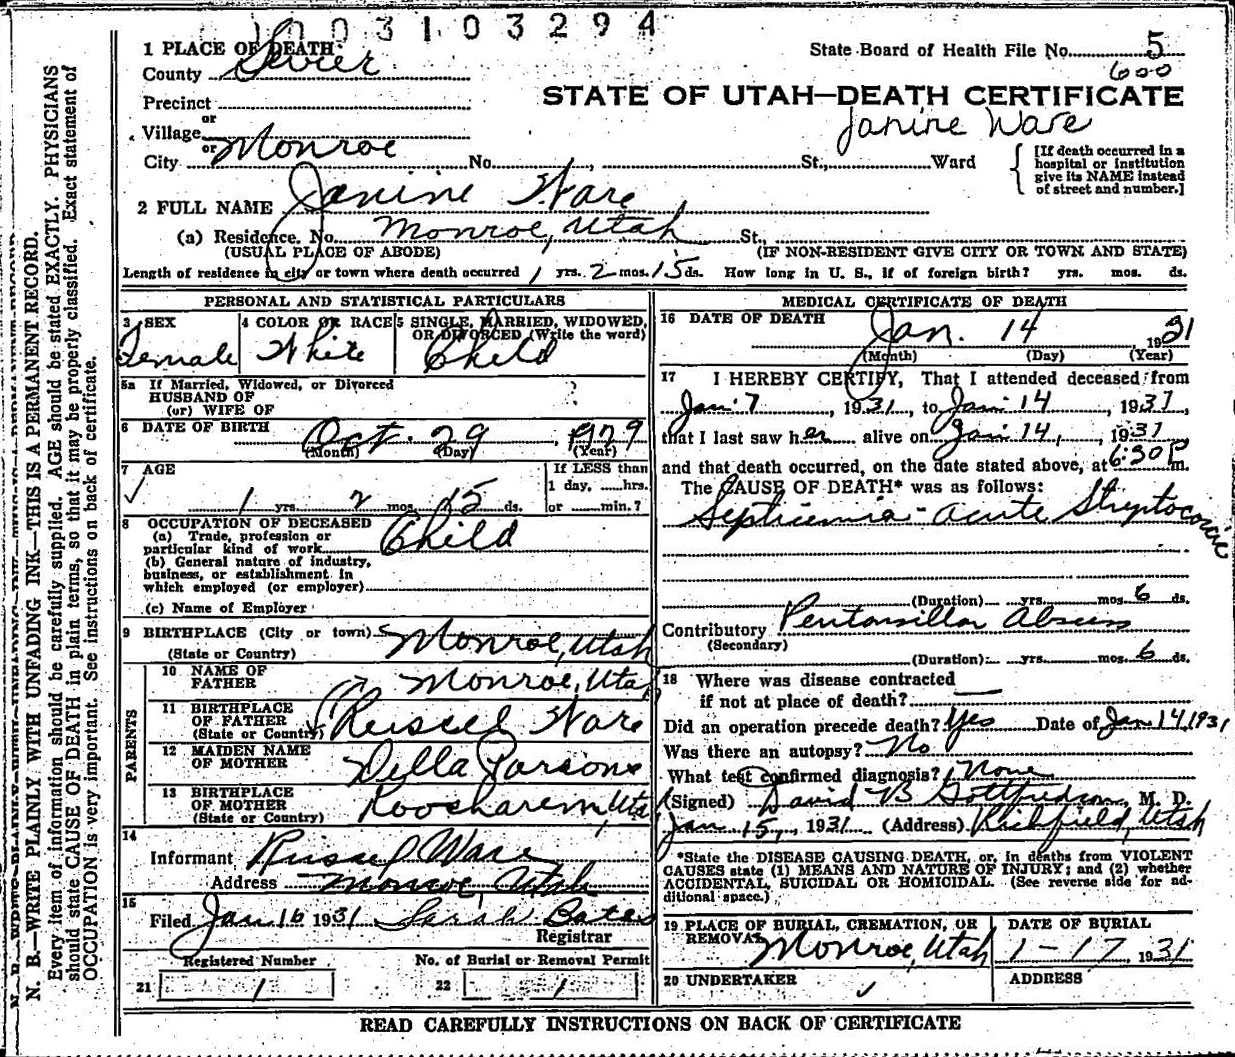 1003103294
1 PLACE OF DEATH
State Board of Health File No. 5
County Sevier
600
Precinct
STATE OF UTAH—DEATH CERTIFICATE
or
Janine Ware
Village
or
City Monroe No. , St., Ward
[If death occurred in a
hospital or institution
give its NAME instead
of street and number.]
2 FULL NAME Janine Ware
(a) Residence. No. Monroe, Utah St.,
(USUAL PLACE OF ABODE) (IF NON-RESIDENT GIVE CITY OR TOWN AND STATE)
Length of residence in city or town where death occurred 1 yrs. 2 mos. 15 ds. How long in U. S., if of foreign birth? yrs. mos. ds.
PERSONAL AND STATISTICAL PARTICULARS
3 SEX
Female
4 COLOR OR RACE
White
5 SINGLE, MARRIED, WIDOWED,
OR DIVORCED (Write the word)
Child
5a If Married, Widowed, or Divorced
HUSBAND OF
(or) WIFE OF
6 DATE OF BIRTH
Oct. 29, 1929
(Month) (Day) (Year)
7 AGE
1 yrs. 2 mos. 15 ds.
If LESS than
1 day, ......hrs.
or ......min.?
8 OCCUPATION OF DECEASED
(a) Trade, profession or
particular kind of work Child
(b) General nature of industry,
business, or establishment in
which employed (or employer)
(c) Name of Employer
9 BIRTHPLACE (City or town) Monroe, Utah
(State or Country)
PARENTS
10 NAME OF
FATHER Monroe, Utah
11 BIRTHPLACE
OF FATHER Russel Ware
(State or Country)
12 MAIDEN NAME
OF MOTHER Della Parsons
13 BIRTHPLACE
OF MOTHER Koosharem, Utah
(State or Country)
14
Informant Russel Ware
Address Monroe, Utah
15
Filed Jan 16 1931 Sarah Bates
Registrar
Registered Number
No. of Burial or Removal Permit
21 1
22 1
MEDICAL CERTIFICATE OF DEATH
16 DATE OF DEATH
Jan. 14, 1931
(Month) (Day) (Year)
17 I HEREBY CERTIFY, That I attended deceased from
Jan. 7, 1931, to Jan 14, 1931,
that I last saw her alive on Jan 14, 1931
and that death occurred, on the date stated above, at 6:30 P m.
The CAUSE OF DEATH* was as follows:
Septicemia - acute Streptococcic
(Duration) yrs. mos. 6 ds.
Contributory Peritonsillar Abscess
(Secondary)
(Duration) yrs. mos. 6 ds.
18 Where was disease contracted
if not at place of death? —
Did an operation precede death? Yes Date of Jan 14, 1931
Was there an autopsy? No
What test confirmed diagnosis? None
(Signed) David B Gottfredson, M. D.
Jan 15, 1931 (Address) Richfield, Utah
*State the DISEASE CAUSING DEATH, or, in deaths from VIOLENT
CAUSES state (1) MEANS AND NATURE OF INJURY; and (2) whether
ACCIDENTAL, SUICIDAL OR HOMICIDAL. (See reverse side for ad-
ditional space.)
19 PLACE OF BURIAL, CREMATION, OR
REMOVAL Monroe, Utah
DATE OF BURIAL
1-17 1931
20 UNDERTAKER
ADDRESS
READ CAREFULLY INSTRUCTIONS ON BACK OF CERTIFICATE
N. B.—WRITE PLAINLY WITH UNFADING INK—THIS IS A PERMANENT RECORD.
Every item of information should be carefully supplied. AGE should be stated EXACTLY. PHYSICIANS
should state CAUSE OF DEATH in plain terms, so that it may be properly classified. Exact statement of
OCCUPATION is very important. See instructions on back of certificate.